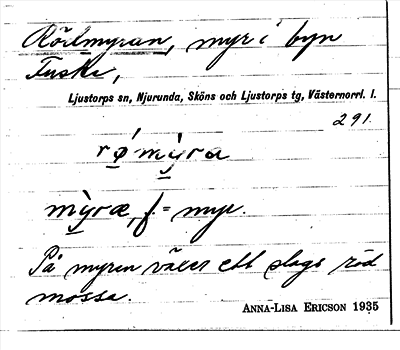 Rödmyran, myr i byn
Fuske,
Ljustorps sn, Njurunda, Sköns och Ljustorps tg, Västernorrl. l.
291.
rø̀mỳra
mỳræ, f. = myr.
På myren växer ett slags röd
mossa.
ANNA-LISA ERICSON 1935